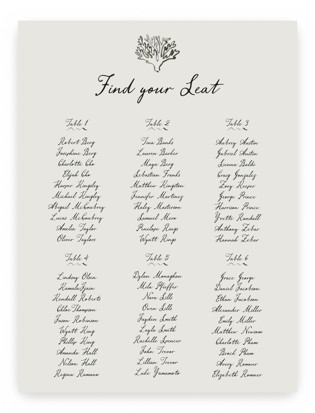 Find your Seat
Table 1
Table 2
Table 3
Robert Berg
Josephine Berg
Charlotte Cho
Elijah Cho
Harper Kingsley
Michael Kingsley
Abigail McCowbrey
Lucas McCowbrey
Amelia Taylor
Oliver Taylor
Tina Banks
Lauren Butler
Maya Berg
Sebastian Frank
Matthew Kingston
Jennifer Martinez
Haley Masterson
Samuel Moon
Penelope Rings
Wyatt Rings
Aubrey Austin
Gabriel Austin
Leanna Butte
Craig Gonzalez
Zoey Keiser
George Prince
Harrison Prince
Yvette Randall
Anthony Zebar
Hannah Zebar
Table 4
Table 5
Table 6
Lindsay Olsen
Kendall Roberts
Chloe Thompson
Susan Robinson
Wyatt King
Phillip King
Amanda Hall
Nolan Hall
Regina Romano
Dylan Monaghan
Mila Pfeiffer
Nora Sills
Owen Sills
Jayden Smith
Layla Smith
Rachelle Spencer
John Trevor
Lillian Trevor
Luke Yamamoto
Grace George
Daniel Jacobson
Ethan Jacobson
Alexander Miller
Emily Miller
Matthew Newsom
Charlotte Pham
Brock Pham
Avery Romano
Elizabeth Romano